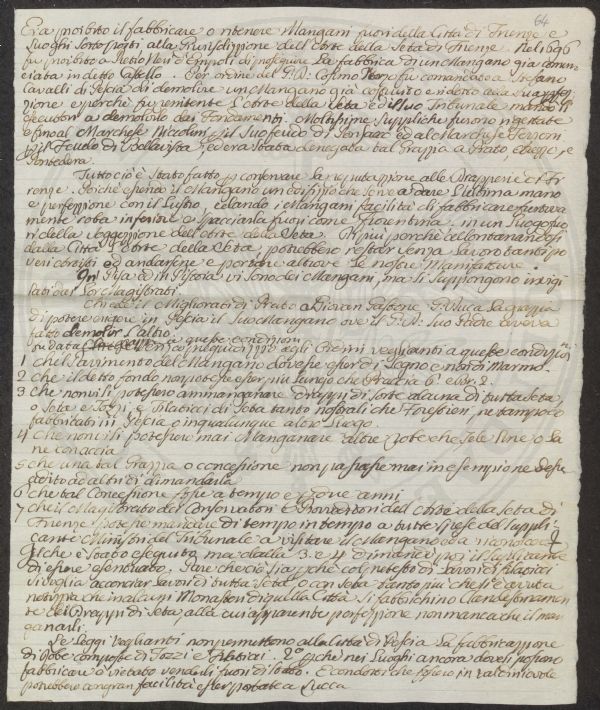 64
Era proibito il fabbricare o ritenere Mangani fuori della Città di Firenze e
Luoghi sottoposti, alla Giurisdizione dell'Arte della Seta di Firenze. Nel 1696
fu proibito a Pietro Neri d'Empoli di proseguire La fabbrica di un Mangano già comin
ciata in detto Castello. Per ordine del G.D. Cosimo Terzo fu comandato a Stefano
Cavalli di Pescia di demolire un Mangano già costruito
zione e perchè fu renitente L'Arte della Seta e il suo Tribunale mandò gl'
esecutori a demolirlo dai Fondamenti. Moltissime Suppliche furono rigettate
e fino al Marchese Niccolini pel suo feudo di Ponsacco ed al Marchese Feroni
pel Feudo di Bellavista, ed era stata denegata tal Grazia a Prato, e
Pontedera.
Tutto ciò è stato fatto per conservare la reputazione alle Drapperie di Fi
renze. Poichè essendo il Mangano un edifizio che serve a dare L'ultima mano
e perfezione con il Lustro, e dando i Mangani facilità di fabbricare furtiva
mente roba inferiore e spacciarla fuori come Fiorentina in un Luogo fuo
ri della soggezione dell'Arte della Seta. Di più perchè allontanandosi
dalla Città L'Arte della Seta, potrebbero restar senza Lavoro tanti po
veri ed andarsene e portare altrove Le nostre Manifatture.
In Pisa ed in Pistoia vi sono dei Mangani, ma si suppongono invigi
lati dai Lor Magistrati.
Chiede il Migliorati di Prato a Giovan Gastone G. Duca La grazia
di potere erigere in Pescia il suo Mangano ove il G.D. suo Padre aveva
fatto demolir L'altro
su data pregiudizio agli Ordini veglianti a queste condizioni
1 che il Pavimento del Mangano dovesse esser di Legno e non di Marmo
2 che il detto fondo non potesse esser più Lungo che Braccia 6 e Largo 2.
3 che non vi si potessero ammanganare drappi di sorte alcuna di tutta Seta,
o Seta e Stami, e Filaticci di Seta tanto nostrali che Forestieri, ne tampoco
fabbricati in Pescia o in qualunque altro Luogo.
4 che non vi si potessero mai Manganare altre Robe che Tele Line o La
ne con accia
5 che una tal Grazia o concessione non passasse mai in esempio ne desse
adito ad altri di dimandarla
6 che tal Concessione fosse a tempo e per Nove anni
7 che il Magistrato dei Conservatori e Provveditori dell'Arte della Seta di
Firenze potesse mandare di tempo in tempo a tutte spese del Suppli
cante Ministri del Tribunale a visitare il Mangano ed a riconoscere
se che è stato eseguito, ma dalla 3 e 4 dimanda per il Supplicante
di essere esentuato. Pare che ciò sia perchè col pretesto di Lavori di Filaticci
si voglia accordar Lavori di tutta Seta, o con Seta tanto più che si è avuta
notizia che in alcuni Monasteri di quella Città si fabbrichino Clandestinamen
te dei Drappi di Seta, alla cui apparente perfezione non manca che il man
ganarli.
Le Leggi veglianti non permettono alla Città di Pescia La fabbricazione
di Robe composte di Tozzi e Filaticci. 2° perchè nei Luoghi ancora dove si possono
fabbricare è vietato venderli fuori di Stato. E
potrebbero con gran facilità esser portate a Lucca